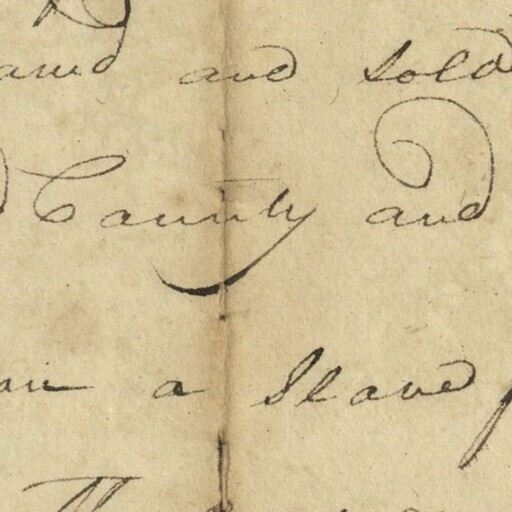 and sold
County and
a Slave